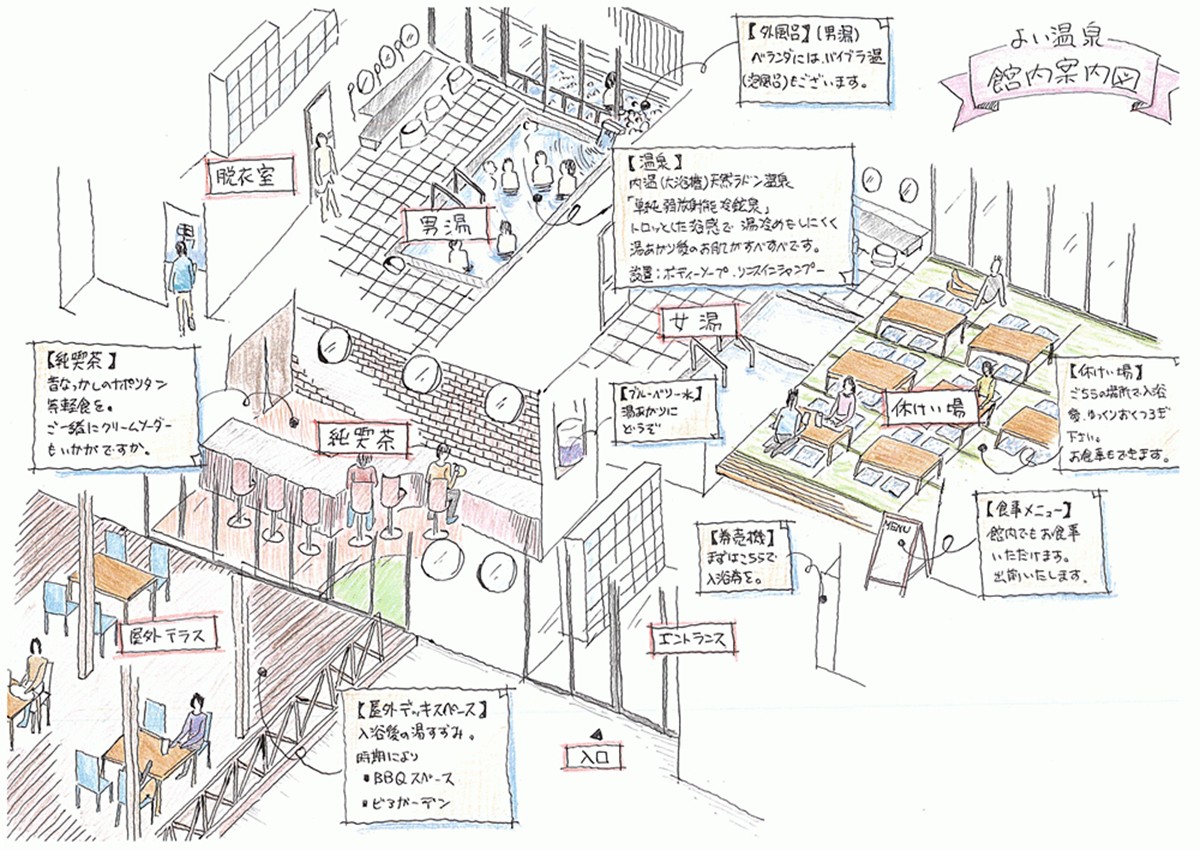 よい温泉
館内案内図
【外風呂】(男湯)
ベランダには、バイブラ温
(泡風呂)もございます。
脱衣室
【温泉】
内温(大浴槽)天然ラドン温泉
「単純弱放射能冷鉱泉」
トロッとした浴感で 湯冷めもしにくく
湯あがり後のお肌がすべすべです。
設置:ボディーソープ、リンスインシャンプー
男湯
女湯
【純喫茶】
昔なつかしのナポリタン
等軽食を。
ご一緒にクリームソーダー
もいかがですか。
純喫茶
【ブルーベリー水】
湯あがりに
どうぞ
休けい場
【休けい場】
こちらの場所で入浴
後、ゆっくりおくつろぎ
下さい。
お食事もできます。
MENU
【食事メニュー】
館内でもお食事
いただけます。
出前いたします。
【券売機】
まずはこちらで
入浴券を。
屋外テラス
エントランス
【屋外デッキスペース】
入浴後の湯すずみ。
時期により
■BBQスペース
■ビアガーデン
▲
入口